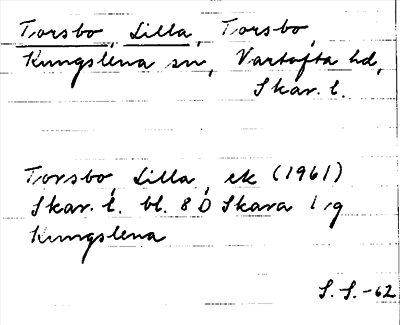 Torsbo, Lilla, Torsbo,
Kungslena sn, Vartofta hd,
Skar. l.
Torsbo, Lilla, ek (1961)
Skar. l. bl. 8 D Skara 1 g
Kungslena
S. S. -62